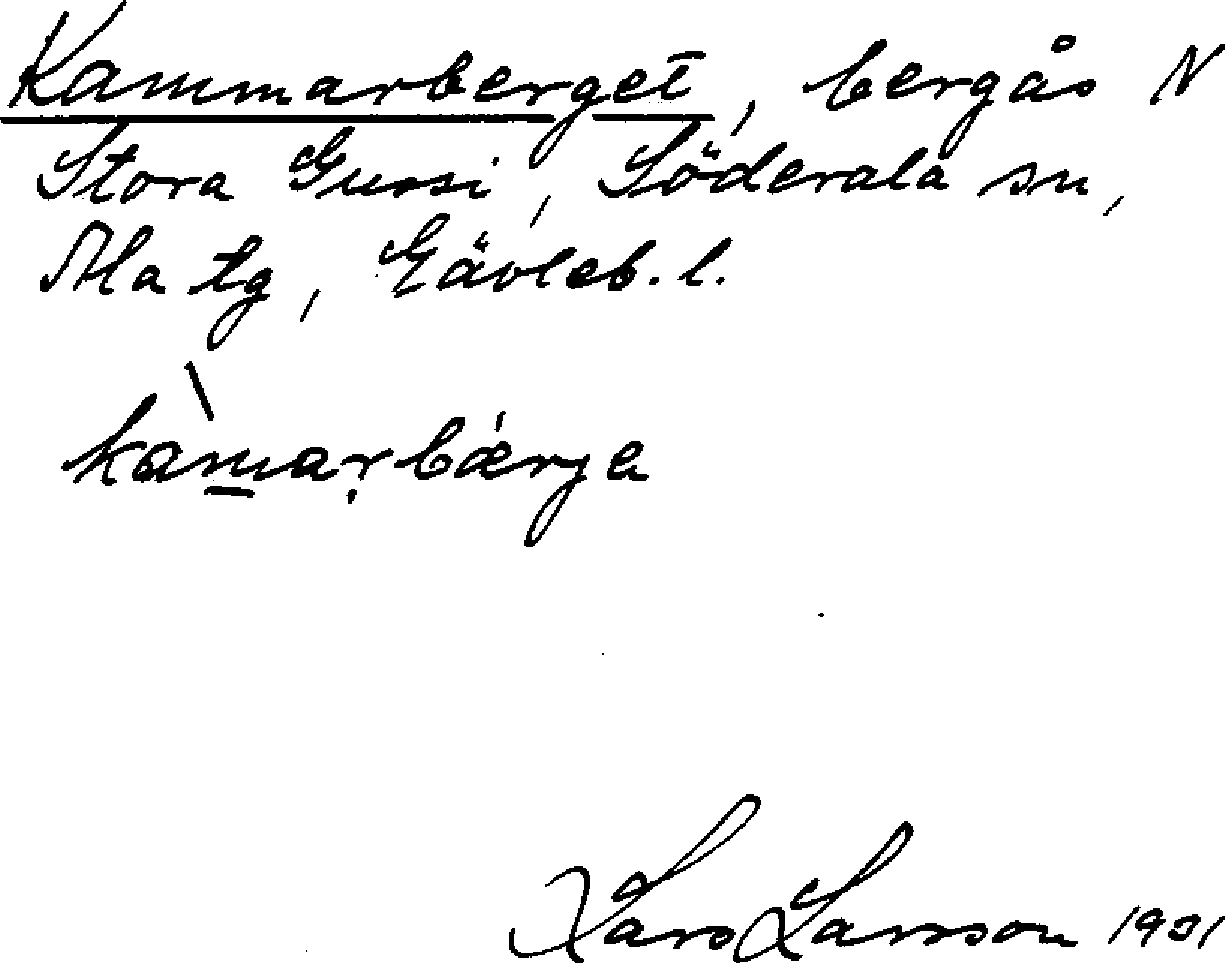 Kammarberget, bergås N
Stora Gussi, Söderala sn,
Ala tg, Gävleb. l.
kàmarbärja
Lars Larsson 1931